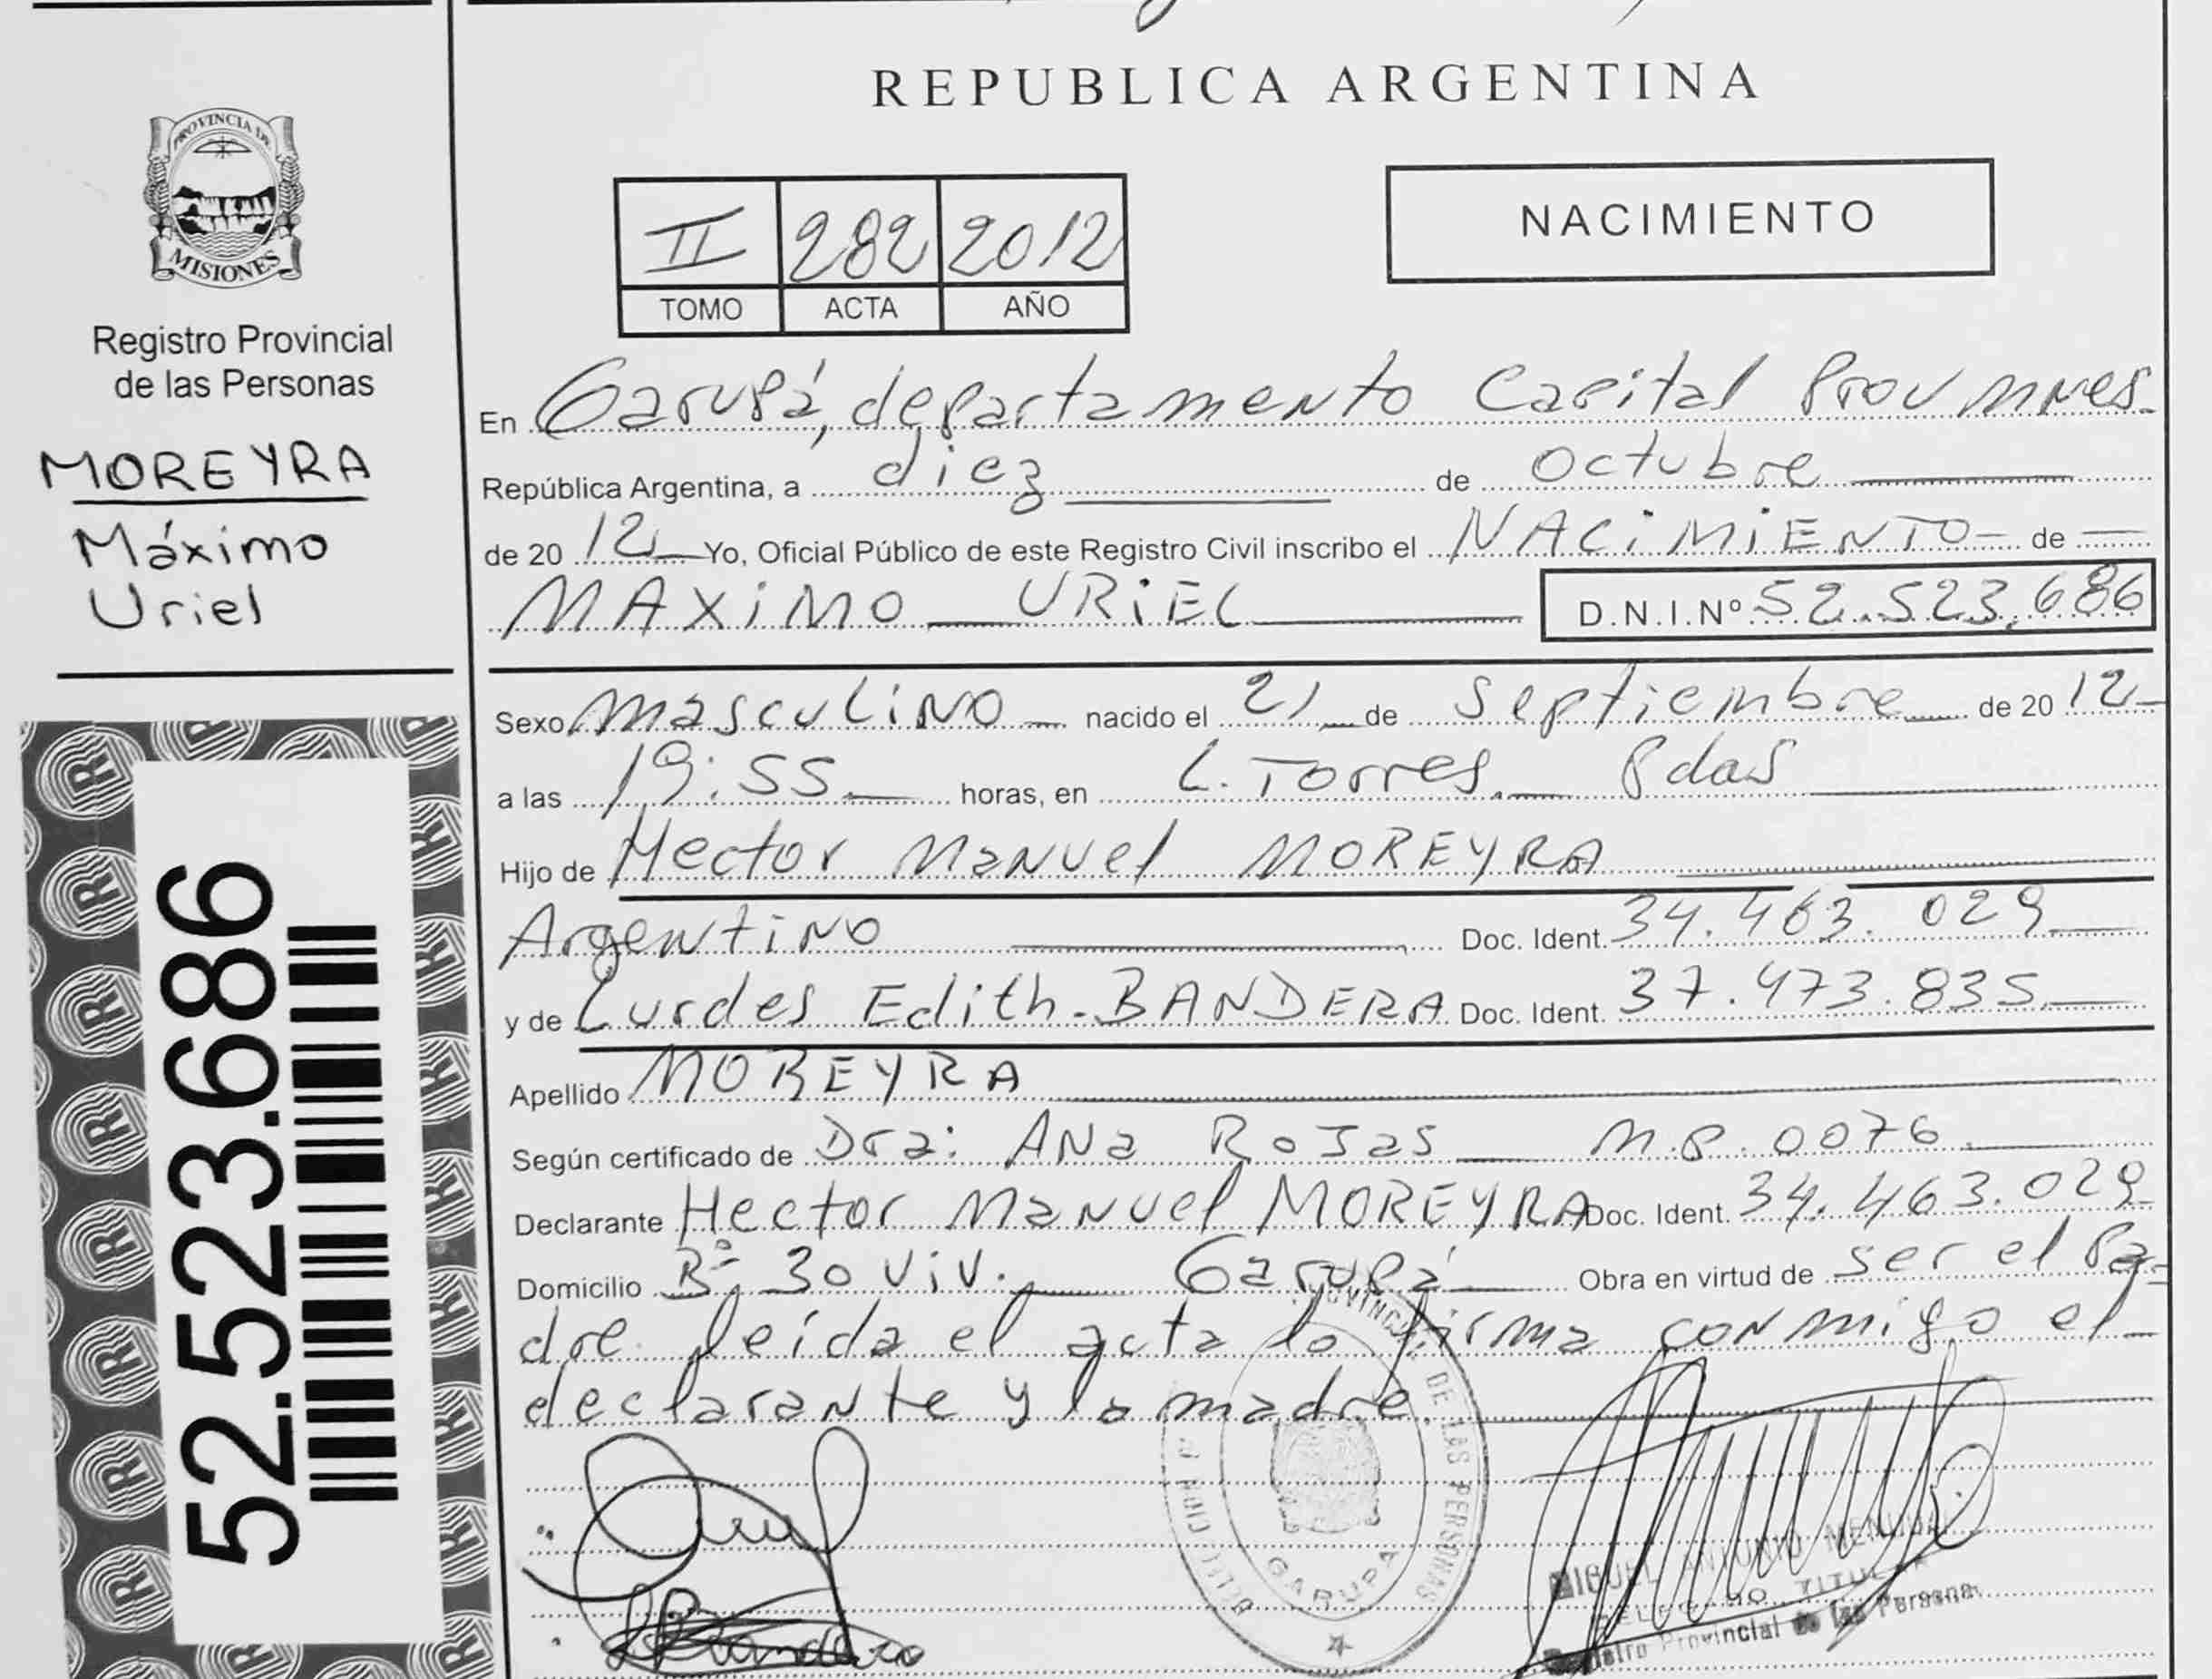 REPUBLICA ARGENTINA
PROVINCIA DE
MISIONES
Registro Provincial
de las Personas
MOREYRA
Máximo
Uriel
52.523.686
II 282 2012
TOMO ACTA AÑO
NACIMIENTO
En Garupá, departamento Capital Prov Mnes
República Argentina, a diez de octubre
de 20 12 Yo, Oficial Público de este Registro Civil inscribo el NACIMIENTO de
MAXIMO URIEL D.N.I.Nº 52.523.686
Sexo masculino nacido el 21 de septiembre de 20 12
a las 19:55 horas, en L. Torres. Pdas
Hijo de Hector Manuel MOREYRA
Argentino Doc. Ident. 34.463.029
y de Lurdes Edith BANDERA Doc. Ident. 37.473.835
Apellido MOREYRA
Según certificado de Dra: Ana Rojas M.P. 0076
Declarante Hector Manuel MOREYRA Doc. Ident. 34.463.029
Domicilio Bº 30 Viv. Garupá Obra en virtud de ser el pa-
dre leída el acta la firma conmigo el
declarante y la madre.
DE LAS PERSONAS
GARUPA
MIGUEL ANTONIO
TITULAR
Registro Provincial de las Personas